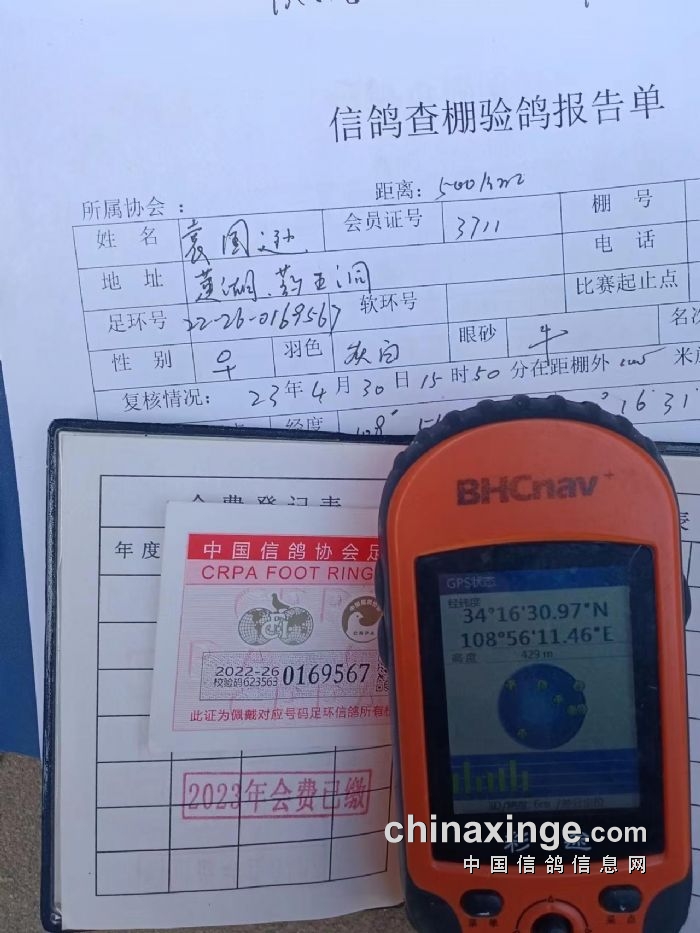 信鸽查棚验鸽报告单
所属协会： 距离：500km
姓 名 袁国逊 会员证号 3711 棚 号
地 址 电 话
足环号 22-26-0169567 软环号 比赛起止点
性 别 羽色 灰白 眼砂 牛 名次
复核情况： 23年4月30日15时50分在距棚外 米
经度
会费登记表
年度
中国信鸽协会足
CRPA FOOT RING
CRPA
2022-26
校验码623563
0169567
此证为佩戴对应号码足环信鸽所有
2023年会费已缴
BHCnav
GPS状态
经纬度
34°16'30.97"N
108°56'11.46"E
高度 429 m
菜单
chinaxinge.com
中国信鸽信息网